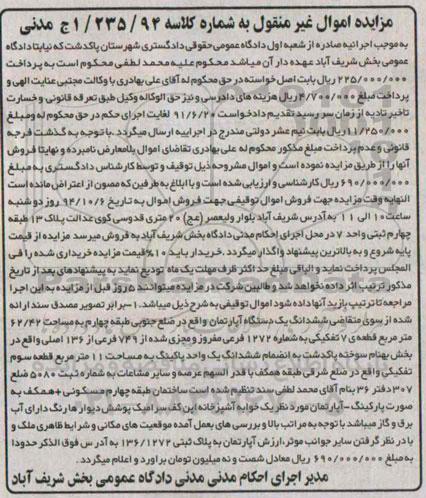 مزایده اموال غیر منقول به شماره کلاسه ۹۴ / ۲۳۵ / ۱ ج مدنی
به موجب اجرائیه صادره از شعبه اول دادگاه عمومی حقوقی دادگستری شهرستان پاکدشت که نیابتا دادگاه
عمومی بخش شریف آباد عهده دار آن میباشد محکوم علیه محمد لطفی محکوم است به پرداخت
۲۲۵/۰۰۰/۰۰۰ ریال بابت اصل خواسته در حق محکوم له آقای علی بهادری با وکالت مجتبی عنایت الهی و
پرداخت مبلغ ۴/۷۰۰/۰۰۰ ریال هزینه های دادرسی و نیز حق الوکاله وکیل طبق تعرفه قانونی و خسارت
تاخیر تادیه از زمان سر رسید تقدیم دادخواست ۹۱/۶/۲۰ لغایت اجرای حکم در حق محکوم له و مبلغ
۱۱/۲۵۰/۰۰۰ ریال بابت نیم عشر دولتی مندرج در اجراییه ارسال میگردد . با توجه به گذشت فرجه
قانونی و عدم پرداخت مبلغ مذکور محکوم له علی بهادری تقاضای اموال بلامعارض نامبرده و نهایتا فروش
آنها را از طریق مزایده نموده است و اموال مشروحه ذیل توقیف و توسط کارشناس دادگستری به مبلغ
۶۹۰/۰۰۰/۰۰۰ ریال کارشناسی و ارزیابی شده است و با ابلاغ به طرفین که مصون از اعتراض مانده است
النهایه وقت مزایده جهت فروش اموال توقیفی جهت فروش اموال به تاریخ ۹۴/۱۰/۶ روز دو شنبه
ساعت ۱۰ الی ۱۱ به آدرس شریف آباد بلوار ولیعصر (عج) ۲۰ متری قدوسی کوی عدالت پلاک ۱۳ طبقه
چهارم ثبتی واحد ۷ در محل اجرای احکام مدنی دادگاه بخش شریف آباد به فروش میرسد مزایده از قیمت
پایه شروع و به بالاترین پیشنهاد واگذار میگردد . خریدار باید ۱۰٪ قیمت مزایده خریداری شده را فی
المجلس پرداخت نماید و الباقی مبلغ حد اکثر ظرف مهلت یک ماه تودیع نماید به پیشنهادهای بعد از تاریخ
مذکور ترتیب اثر داده نخواهد شد و طالبین شرکت در مزایده میتوانند ۵ روز قبل از مزایده به این اجرا
مراجعه تا ترتیب بازدید آنها داده شود اموال توقیفی به شرح ذیل میباشد. ۱-برابر تصویر مصدق سند ارائه
شده از سوی متقاضی ششدانگ یک دستگاه آپارتمان واقع در ضلع جنوبی طبقه چهارم به مساحت ۶۲/۴۲
متر مربع قطعه ی ۷ تفکیکی به شماره ۱۲۷۲ فرعی مفروز و مجزی شده از ۷۴۹ فرعی از ۱۳۶ اصلی واقع در
بخش بهنام سوخته پاکدشت به انضمام ششدانگ یک واحد پاکینگ به مساحت ۱۱ متر مربع قطعه سوم
تفکیکی واقع در ضلع شرقی طبقه همکف با قدر السهم عرصه و سایر مشاعات به شماره ثبت ۵۰۸۰ ضلع
۳۰۷ دفتر ۳۶ بنام آقای محمد لطفی سند تنظیم شده است ساختمان طبقه چهارم مسکونی +همکف به
صورت پارکینگ-آپارتمان مورد نظر یک خوابه آشپزخانه اپن کف سرامیک پوشش دیوار ها رنگ دارای آب
برق و گاز میباشد با توجه به مراتب بالا و بررسی های بعمل آمده موقعیت های مکانی و شرایط ظاهری ملک و
با در نظر گرفتن سایر جوانب موثر، ارزش آپارتمان به پلاک ثبتی ۱۳۶/۱۲۷۲ به آدرس فوق الذکر حدودا
به مبلغ ۶۹۰/۰۰۰/۰۰۰ ریال معادل شصت و نه میلیون تومان برآورد و اعلام میگردد .
مدیر اجرای احکام مدنی مدنی دادگاه عمومی بخش شریف آباد